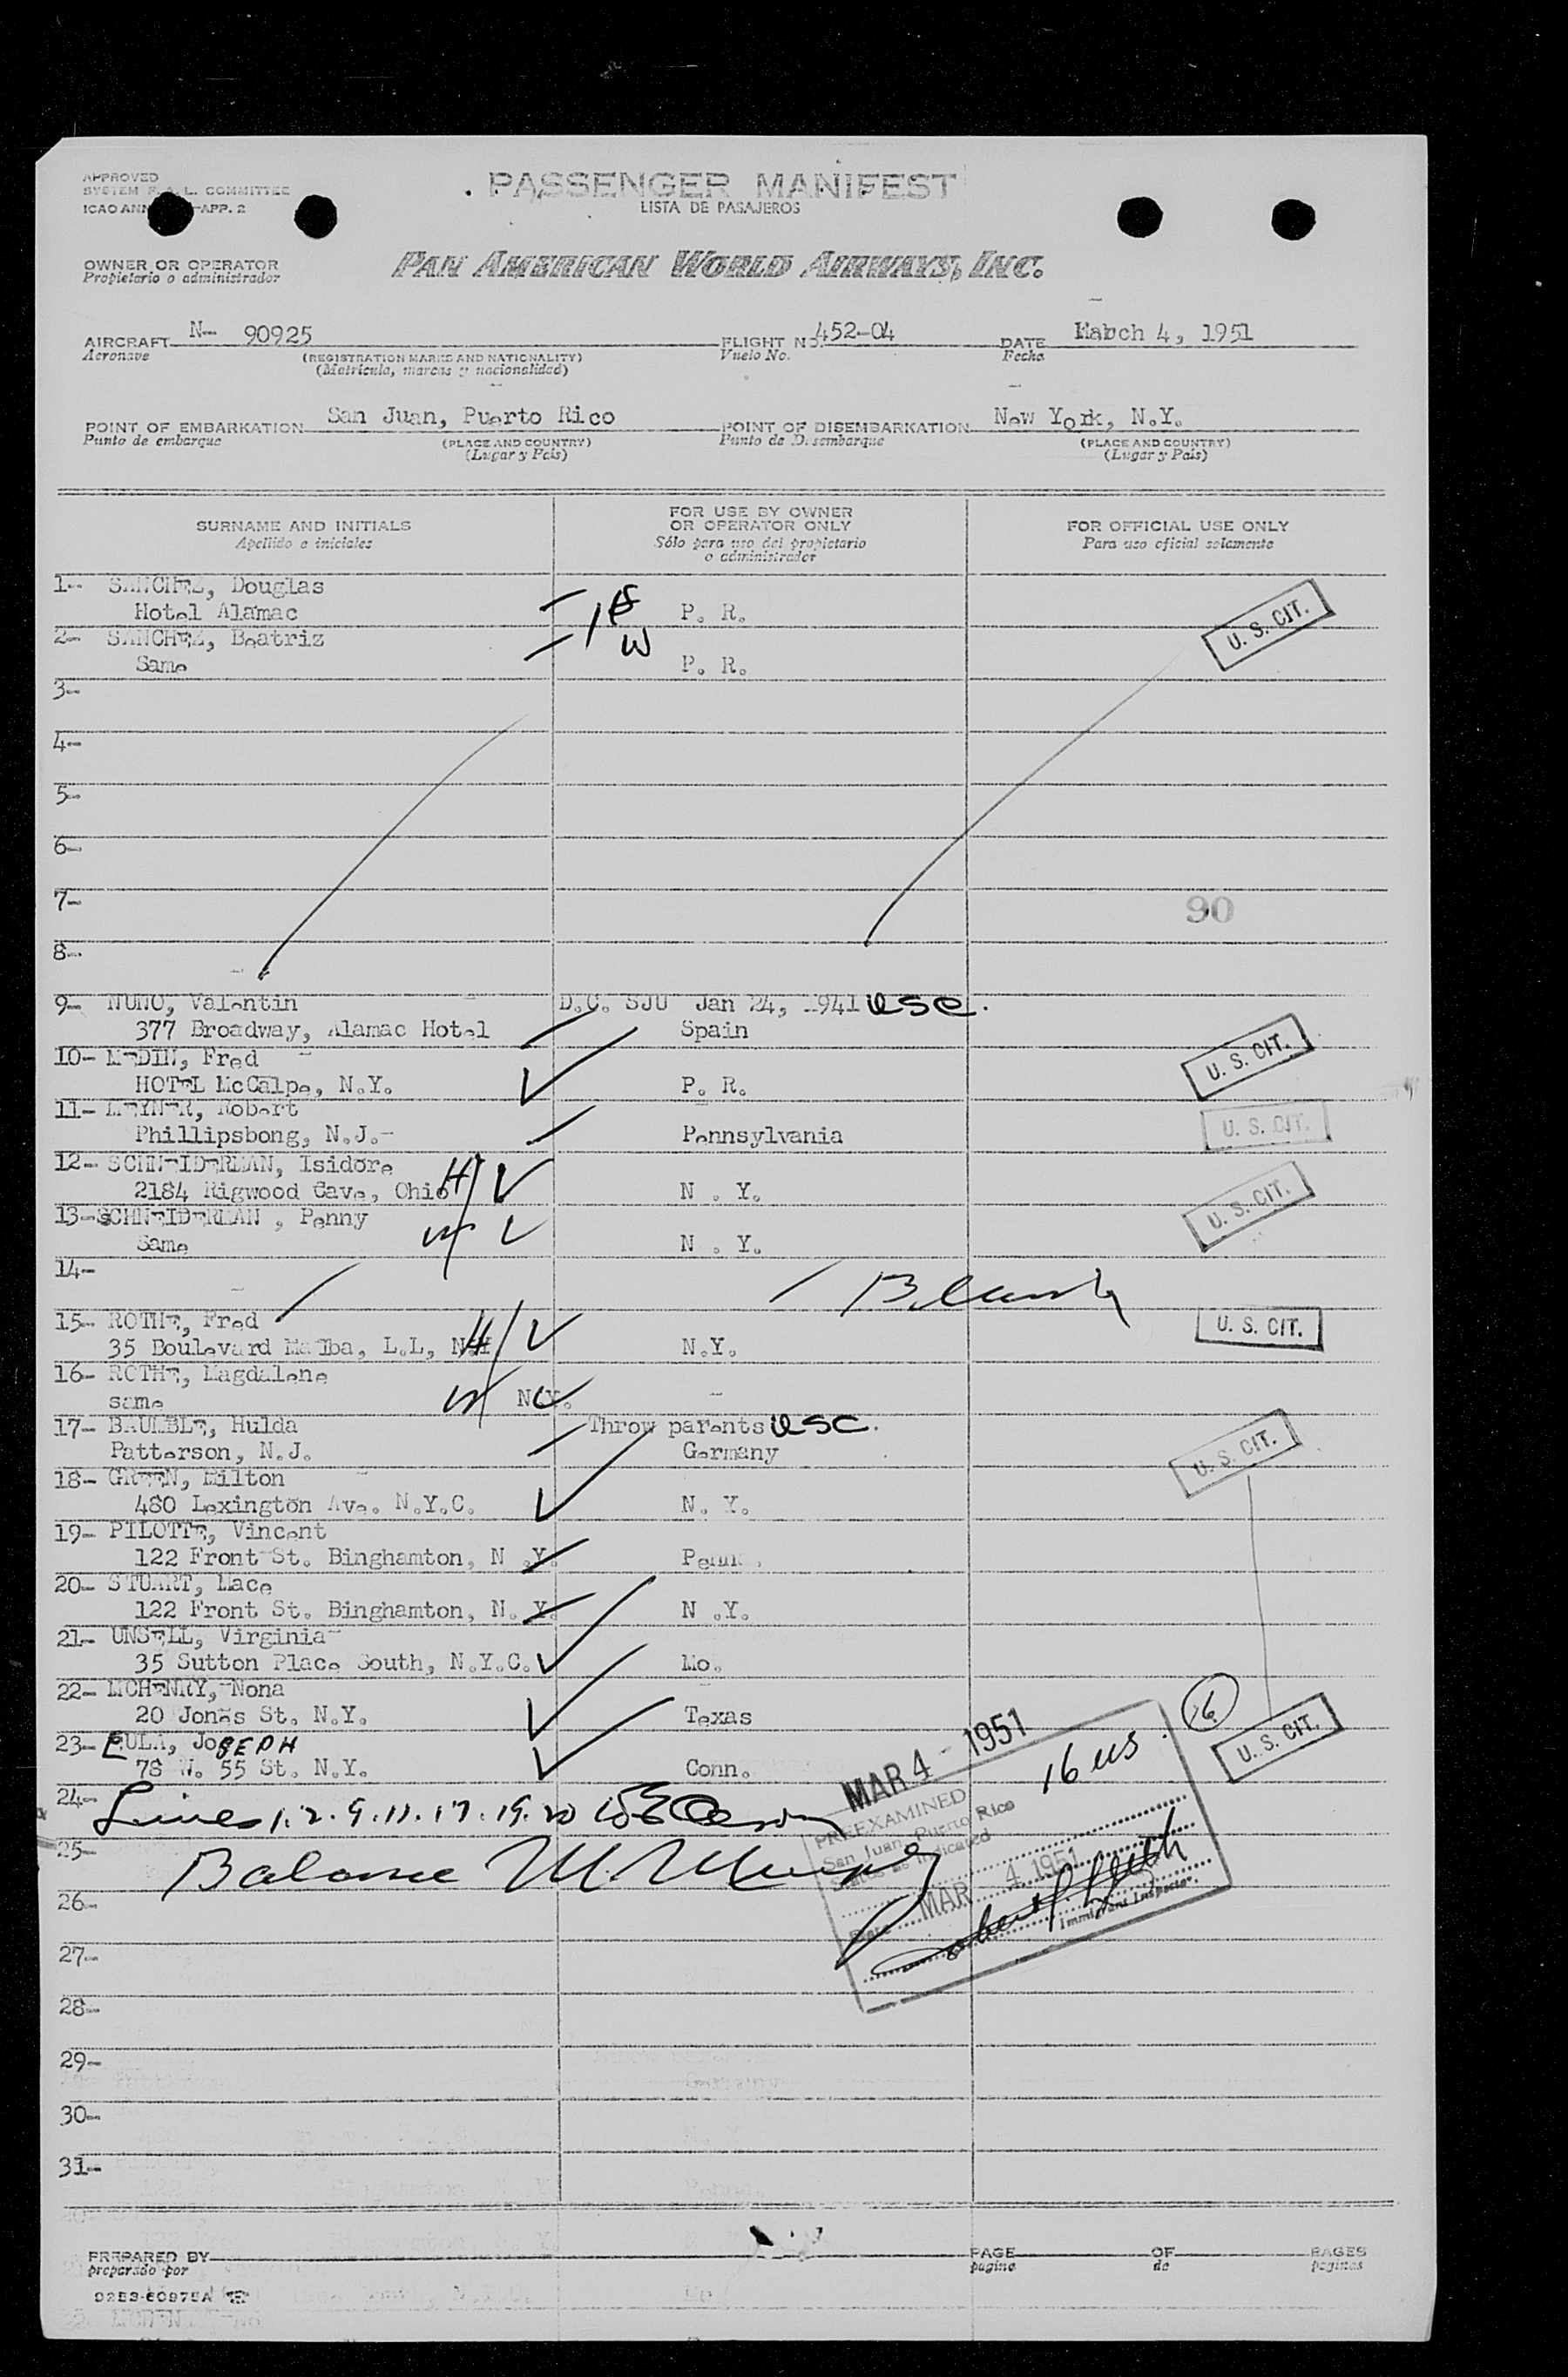 APPROVED
SYSTEM F.A.L. COMMITTEE
ICAO ANN -APP. 2
PASSENGER MANIFEST
LISTA DE PASAJEROS
OWNER OR OPERATOR
Propietario o administrador
PAN AMERICAN WORLD AIRWAYS, INC.
AIRCRAFT N- 90925 FLIGHT NO. 452-04 DATE March 4, 1951
Aeronave (REGISTRATION MARKS AND NATIONALITY) Vuelo No. Fecha
(Matrícula, marcas y nacionalidad)
POINT OF EMBARKATION San Juan, Puerto Rico POINT OF DISEMBARKATION New York, N.Y.
Punto de embarque (PLACE AND COUNTRY) Punto de Disembarque (PLACE AND COUNTRY)
(Lugar y Pais) (Lugar y Pais)
SURNAME AND INITIALS FOR USE BY OWNER OR OPERATOR ONLY FOR OFFICIAL USE ONLY
Apellido e iniciales Sólo para uso del propietario o administrador Para uso oficial solamente
1- SANCHEZ, Douglas
Hotel Alamac P. R. U. S. CIT.
2- SANCHEZ, Beatriz W
Same P. R.
3-
4-
5-
6-
7-
90
8-
9- NUNO, Valentin D.C. SJU Jan 24, 1941 USC.
377 Broadway, Alamac Hotel Spain
10- MEDIN, Fred U. S. CIT.
HOTEL McCalpe, N.Y. P. R.
11- MEYNER, Robert
Phillipsbong, N.J.- Pennsylvania U. S. CIT.
12- SCHNEIDERMAN, Isidore
2184 Rigwood Cave, Ohio H N . Y. U. S. CIT.
13- SCHNEIDERMAN , Penny
Same W N . Y.
14-
15- ROTHE, Fred U. S. CIT.
35 Boulevard Malba, L.L, N.Y. H N.Y.
16- ROTHE, Magdalene
same W N.Y. -
17- BAUMBLE, Hulda Throw parents USC.
Patterson, N.J. Germany U. S. CIT.
18- GREEN, Milton
480 Lexington Ave. N.Y.C. N. Y.
19- PILOTTE, Vincent
122 Front St. Binghamton, N .Y. Penn.
20- STUART, Mace
122 Front St. Binghamton, N. Y. N .Y.
21- UNSELL, Virginia
35 Sutton Place South, N.Y.C. Mo.
22- MCHENRY, Nona
20 Jones St. N.Y. Texas 16
23- EULA, JoSEPH U. S. CIT.
78 W. 55 St. N.Y. Conn. 16 US.
24- Lines 1. 2. 9. 11. 17. 19. 20
25- Balance
MAR 4 - 1951
PREEXAMINED
San Juan, Puerto Rico
Status as Indicated
Date MAR 4 1951
Immigrant Inspector.
26-
27-
28-
29-
30-
31-
PREPARED BY PAGE OF PAGES
preparado por pagina de paginas
9253-60975A